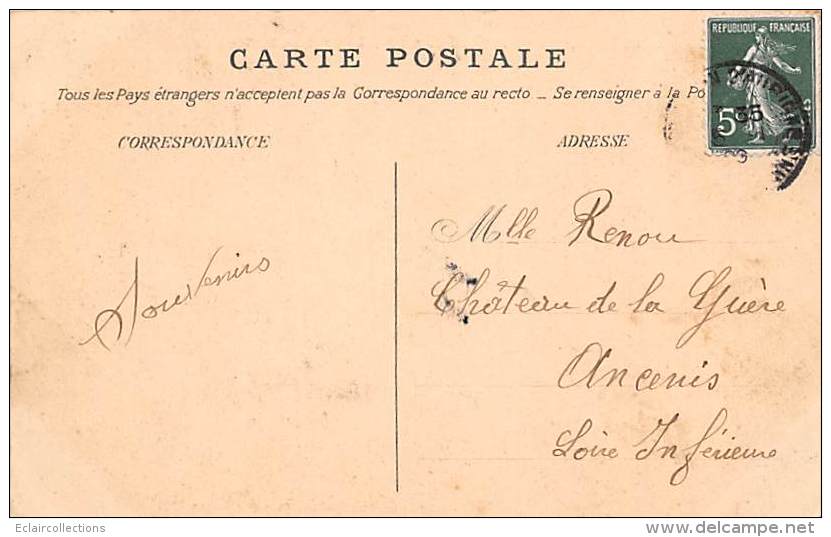 CARTE POSTALE
Tous les Pays étrangers n'acceptent pas la Correspondance au recto _ Se renseigner à la Po
CORRESPONDANCE
ADRESSE
REPUBLIQUE FRANÇAISE
5
Souvenirs
Mlle Renou
Château de la Guère
Ancenis
Loire Inférieure
Eclaircollections
www.delcampe.net